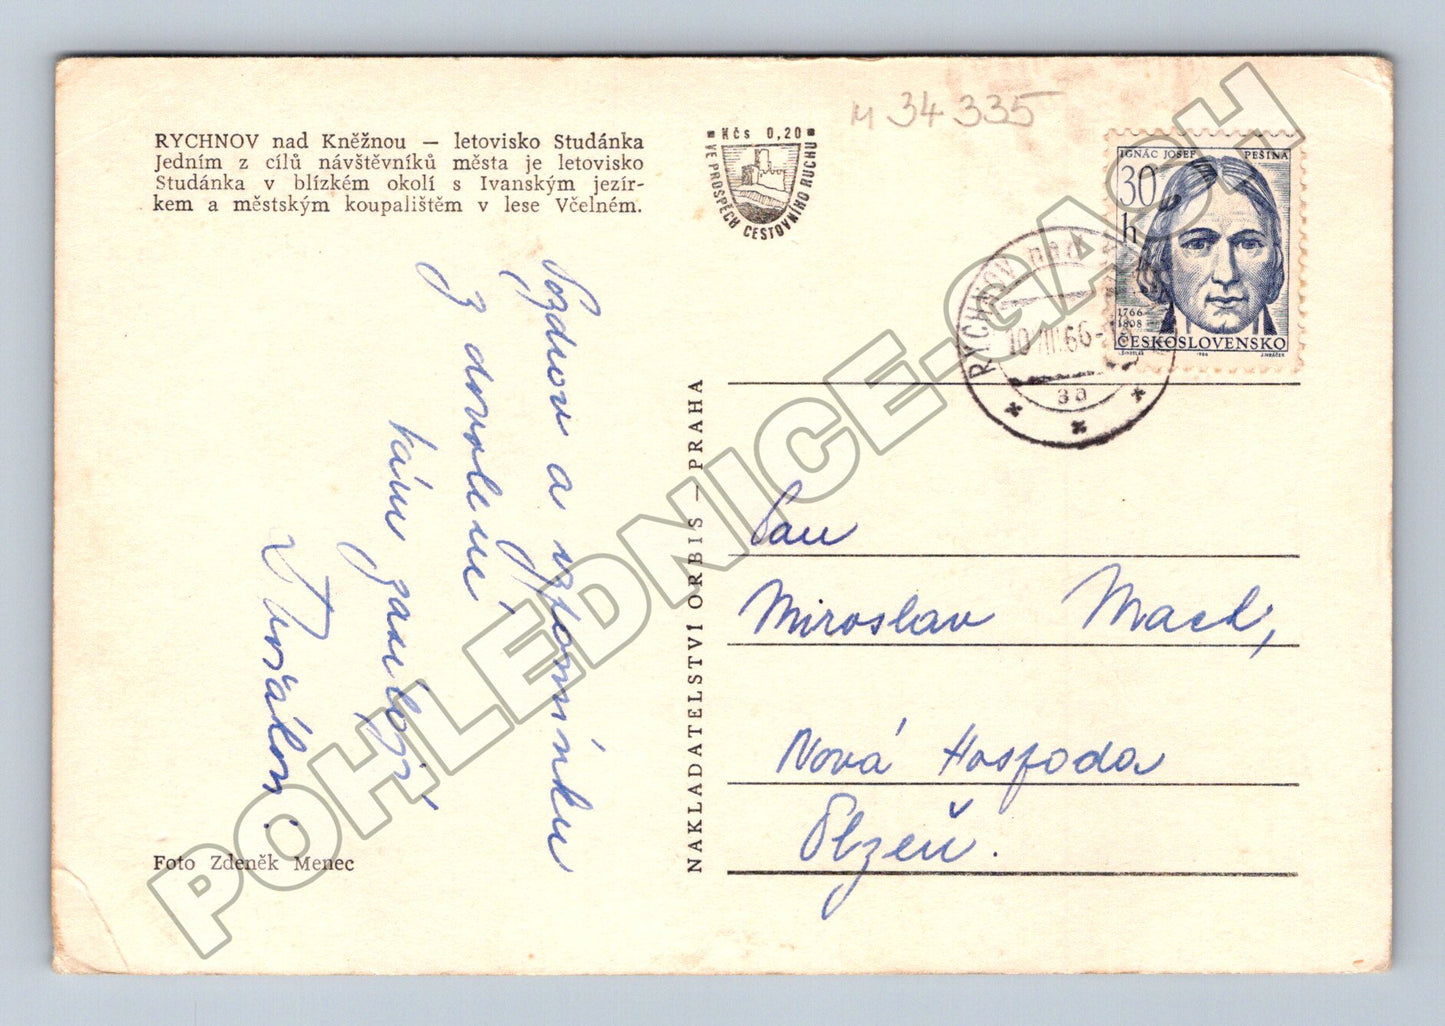 RYCHNOV nad Kněžnou — letovisko Studánka
Jedním z cílů návštěvníků města je letovisko
Studánka v blízkém okolí s Ivanským jezír-
kem a městským koupalištěm v lese Včelném.
Kčs 0,20
VE PROSPĚCH CESTOVNÍHO RUCHU
M 34 335
IGNÁC JOSEF PEŠINA
30
h
1766-
1808
ČESKOSLOVENSKO
RYCHNOV nad
10 III 66
Pozdrav a vzpomínku
z dovolené
Vám
NAKLADATELSTVÍ ORBIS — PRAHA
Pan
Miroslav
Nová Hospoda
Plzeň.
Foto Zdeněk Menec
POHLEDNICE-GACH